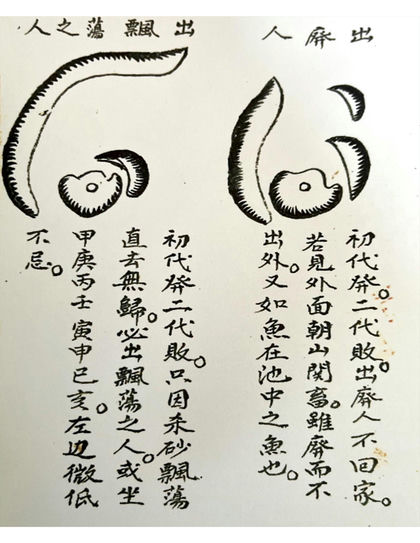 出廢人
初代發。二代敗。出廢人不回家。
若見外面朝山関蓄。雖廢而不
出外。又如魚在池中之魚也。
出飄蕩之人
初代發二代敗。只因杀砂飄蕩
直去無歸。必出飄蕩之人。或坐
甲庚丙壬 寅申巳亥。左边微低
不忌。